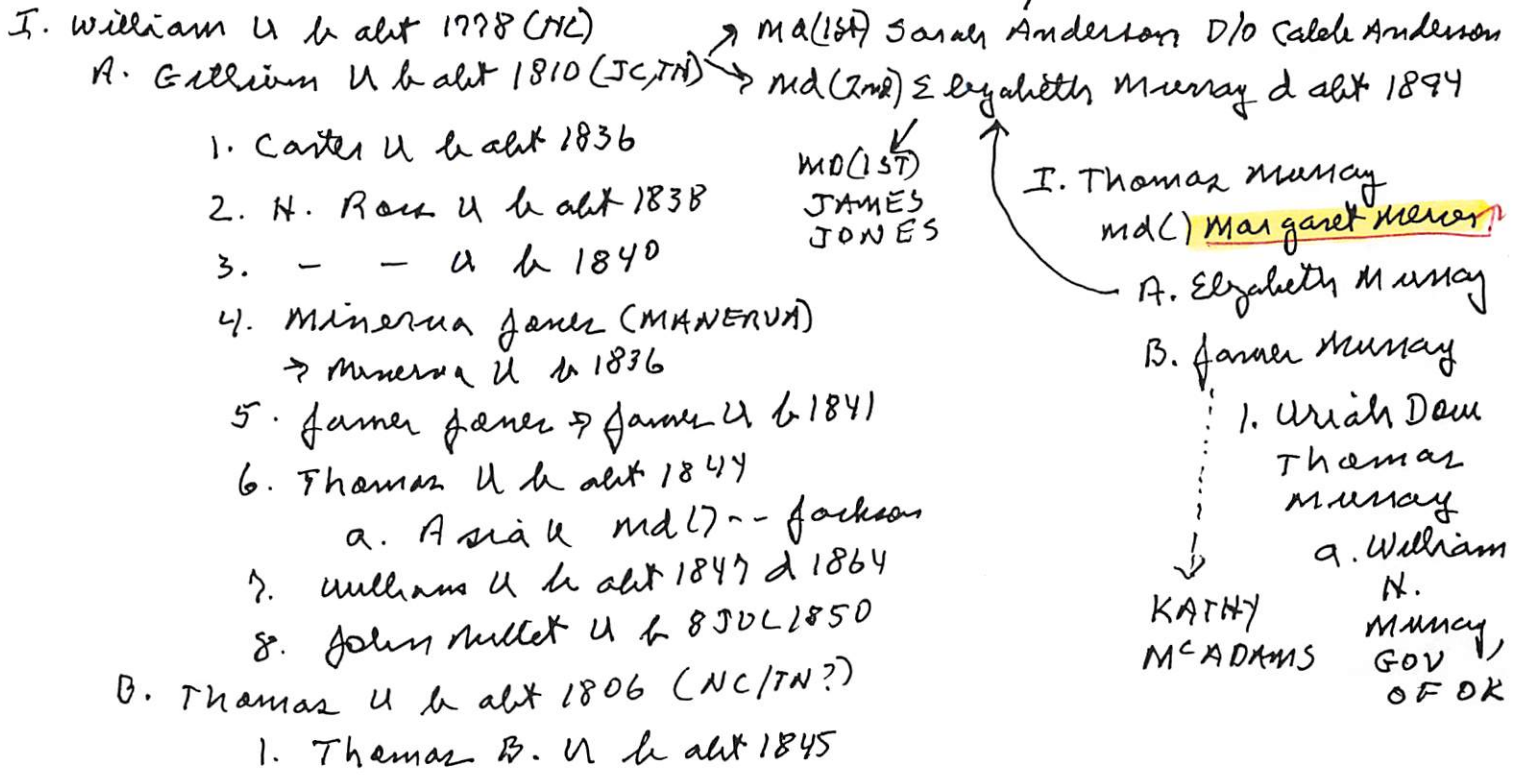 I. William U b abt 1778 (NC)
md(1st) Sarah Anderson D/o Caleb Anderson
A. William U b abt 1810 (JC,TN)
md(2nd) Elizabeth Murray d abt 1894
1. Carter U b abt 1836
2. H. Ross U b abt 1838
3. - - U b 1840
4. Minerva Jones (MANERVA)
→ Minerva U b 1836
5. James Jones → James U b 1841
6. Thomas U b abt 1844
a. Asia U md() -- Jackson
7. William U b abt 1847 d 1864
8. John U b 8 JUL 1850
B. Thomas U b abt 1806 (NC/TN?)
1. Thomas B. U b abt 1845
MD(1ST)
JAMES
JONES
I. Thomas Murray
md() Margaret Mercer
A. Elizabeth Murray
B. James Murray
1. Uriah Dow
Thomas
Murray
a. William
H.
Murray,
GOV
OF OK
KATHY
McADAMS